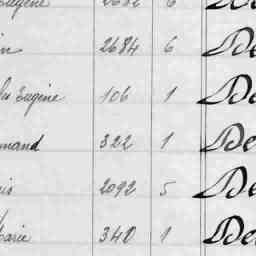 Eugène 2682 6 De
in 2684 6 De
les Eugène 106 1 De
mand 322 1 De
is 2092 5 De
Marie 340 1 De